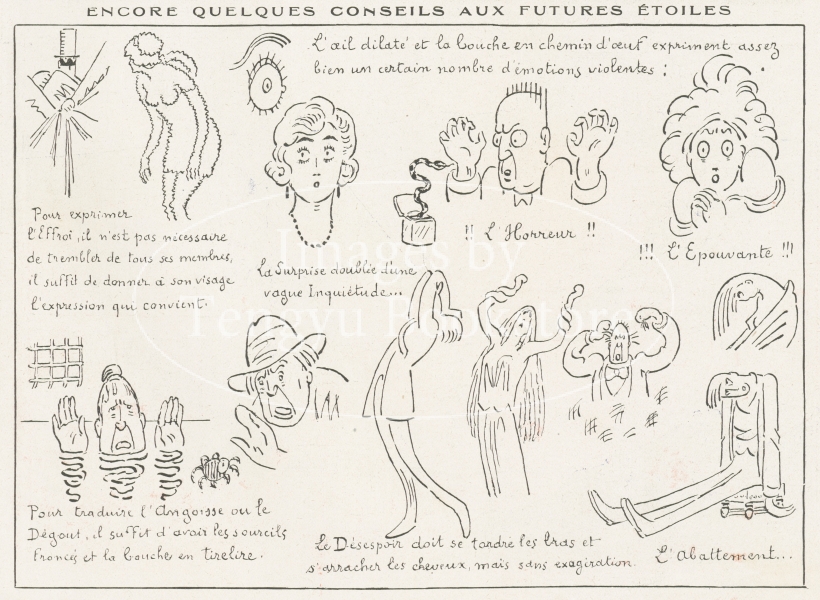 ENCORE QUELQUES CONSEILS AUX FUTURES ÉTOILES
L'œil dilaté et la bouche en chemin d'œuf expriment assez
bien un certain nombre d'émotions violentes :
Pour exprimer
l'Effroi, il n'est pas nécessaire
de trembler de tous ses membres,
il suffit de donner à son visage
l'expression qui convient.
La Surprise doublée d'une
vague Inquiétude...
!! L'Horreur !!
!!! L'Epouvante !!!
Images by
Fengyu Bookstore
Pour traduire l'Angoisse ou le
Dégout, il suffit d'avoir les sourcils
froncés et la bouche en tirelire.
Le Désespoir doit se tordre les bras et
s'arracher les cheveux, mais sans exagération.
L'abattement...